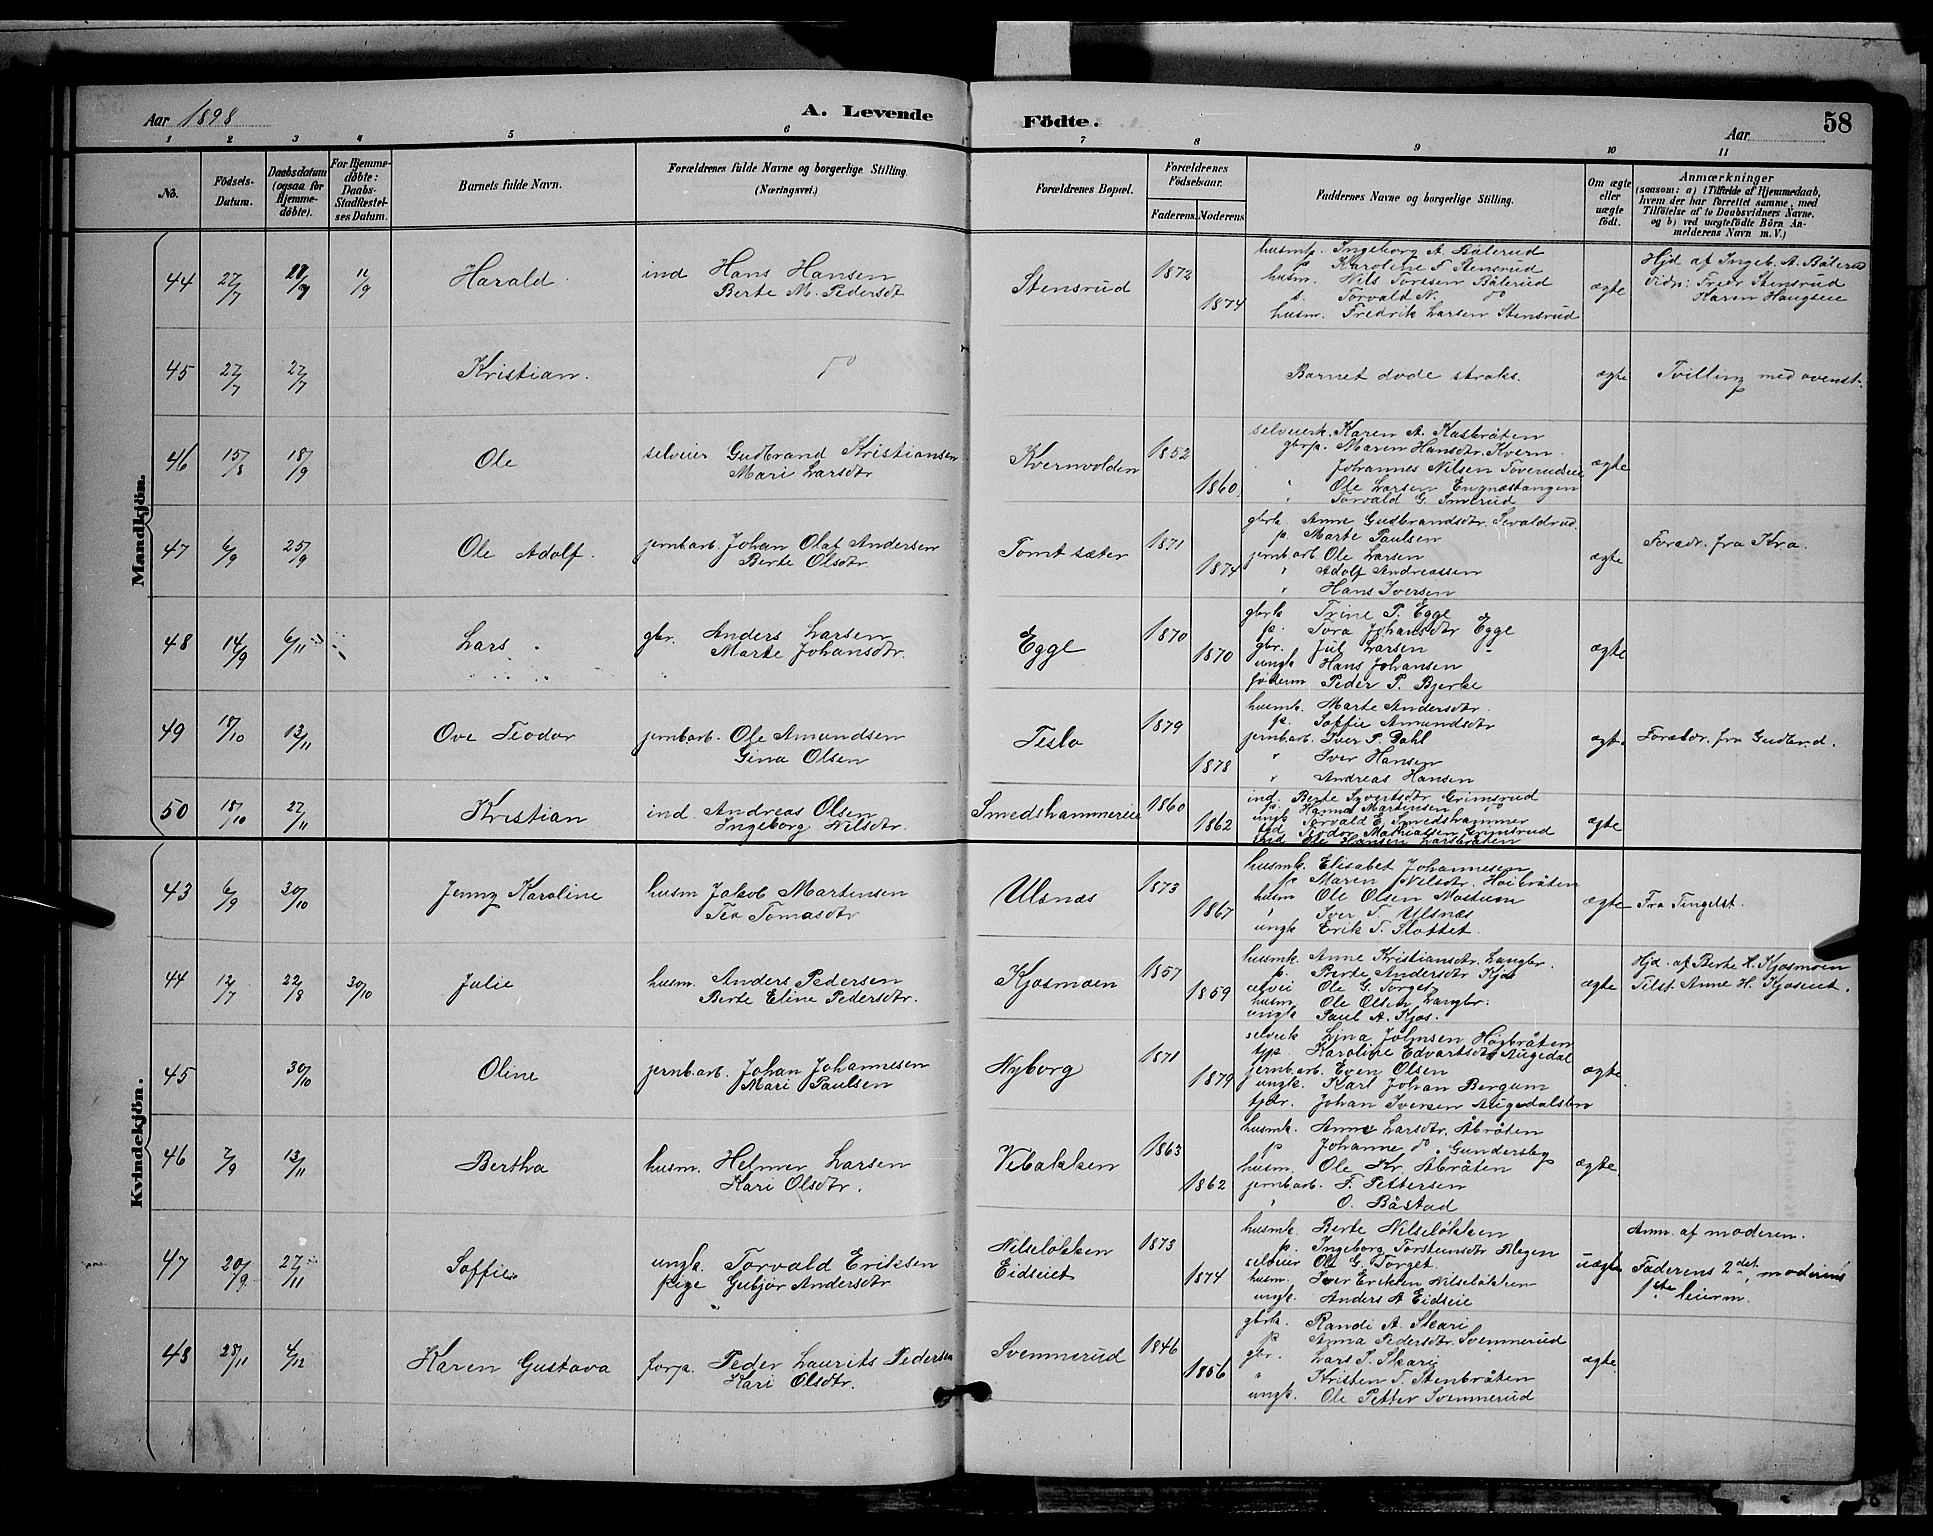 Aar 1898
A. Levende
Födte.
Aar
58
1 2 3 4 5 6 7 8 9 10 11
No.
Födsels-Datum.
Daabsdatum (ogsaa for Hjemme-døbte).
For Hjemme-døbte: Daabs-Stadfæstel-ses Datum.
Barnets fulde Navn.
Forældrenes fulde Navne og borgerlige Stilling. (Næringsvei.)
Forældrenes Bopæl.
Forældrenes Födselsaar.
Faderens Moderens
Faddernes Navne og borgerlige Stilling.
Om ægte eller uægte födt.
Anmærkninger
(saasom: a) i Tilfælde af Hjemmedaab, hvem der har forrettet samme, med Tilföielse af to Daabsvidners Navne, og b) ved uægtefödte Börn An-melderens Navn m. V.)
Mandkjön.
44 27/7 9 11/9 Harald. ind Hans Hansen
Berte M. Pedersdt
Stensrud 1872 1874
husmk. Ingeborg A. Bålerud
p Karoline F Stensrud
husm. Nils Toresen Bålerud
s. Torvald N. do
husm. Fredrik Larsen Stensrud
ægte
Hjd af Ingeb. A. Bålerud
Vidn: Fredr Stensrud
Karen Haugseie
45 27/7 27/7 Kristian. do
Barnet døde straks. ægte Tvilling med ovenst.
46 15/8 18/9 Ole selveier Gudbrand Kristiansen
Mari Larsdtr
Kvernvolden 1852 1860.
selveierk. Karen A. Kasbråten
gbrp. Maren Hansdtr. Kvern.
Johannes Nilsen Toverudseie
" Ole Larsen Engnæstangen
" Torvald G. Smerud
ægte
47 6/9 25/9 Ole Adolf. jernb.arb. Johan Olaf Andersen
Berte Olsdtr.
Tomtsæter 1871 1874
gbrk Anne Gudbrandsdtr. Sevaldrud
p. Marte Paulsen
jernb.arb Ole Larsen
" Adolf Andreassen
" Hans Iversen
ægte
Forældr. fra Kr.a.
48 14/9 6/11 Lars gbr. Anders Larsen
Marte Johansdtr.
Egge 1870 1870
gbrk Trine P. Egge
p. Tora Johansdtr Egge
gbr. Jul Larsen "
ungk Hans Johansen
føderm Peder P. Bjerke
ægte
49 17/10 13/11 Ove Teodor jernb.arb. Ole Amundsen
Gina Olsen
Teslo 1879 1878
husmk. Marte Andersdtr.
p. Soffie Amundsdtr
jernb.arb. Iver P. Dahl
" Iver Hansen
" Andreas Hansen
ægte
Forældr. fra Gudbrd.
50 18/10 27/11 Kristian ind. Andreas Olsen
Ingeborg Nilsdtr.
Smedshammereie 1860 1862
ind. Berte Syvertsdtr Grimsrud
p. Hanna Martinsen do
ungk Torvald E. Smedshammer
Teodor Mathiassen Grimsrud
ind Ole Hansen Larsbråten
ægte
Kvindekjön.
43 6/9 30/10 Jenny Karoline husm Jakob Martinsen
Tea Tomasdtr
Ulsnæs 1873 1867
husmk. Elisabet Johannesen
p Maren Nilsdtr. Høibråten
husm Ole Olsen Mostuen
" Iver T. Ulsnæs
ungk Erik T. Slottet
ægte Fra Tingelst.
44 12/7 22/8 30/10 Julie husm. Anders Pedersen
Berte Eline Pedersdtr.
Kjosmoen 1857 1859
husmk. Anne Kristiansdtr. Langbr.
p. Berte Andersdtr Kjos
selvei Ole G. Torget
husm Ole Olsen Langbr.
ungk Paul A. Kjos.
ægte
Hjd. af Berte H. Kjosmoen
Tilst. Anne H. Kjoseiet.
45 30/10 Oline jernb.arb. Johan Johannesen
Mari Paulsen
Nyborg 1871 1879
selveik Lina Johnsen Høgbråten
tjp Karoline Edvartsdtr Augedal
jernb.arb. Even Olsen
ungk. Karl Johan Bergum
tjdr. Johan Iversen Augedalsbr
ægte
46 2/9 13/11 Bertha husm. Helmer Larsen
Kari Olsdtr.
Vebakken 1863 1862
husmk. Anne Larsdtr. Åbråten
p Johanne do. Gundersby
husm. Ole Kr. Åbråten
jernb.arb. F. Pettersen
" O. Båstad
ægte
47 20/9 27/11 Soffie ungk. Torvald Eriksen
pige Gubjør Andersdtr
Nilseløkken
Eidseiet
1873 1874
husmk. Berte Nilseløkken
p. Ingeborg Torsteinsdtr Blegen
selveier Ole G. Torget
husm. Iver Eriksen Nilseløkken
ungk. Anders A Eidseie
uægte
Anm. af moderen.
Faderens 2det, moderens
1ste leierm.
48 28/11 4/12 Karen Gustava forp. Peder Laurits Pedersen
Kari Olsdtr.
Svemmerud 1846 1856
gbrk. Randi A. Skari
p. Anna Pedersdtr Svemmerud
gbr. Lars P. Skari
" Kristen T. Stenbråten
ungk. Ole Petter Svemmerud
ægte